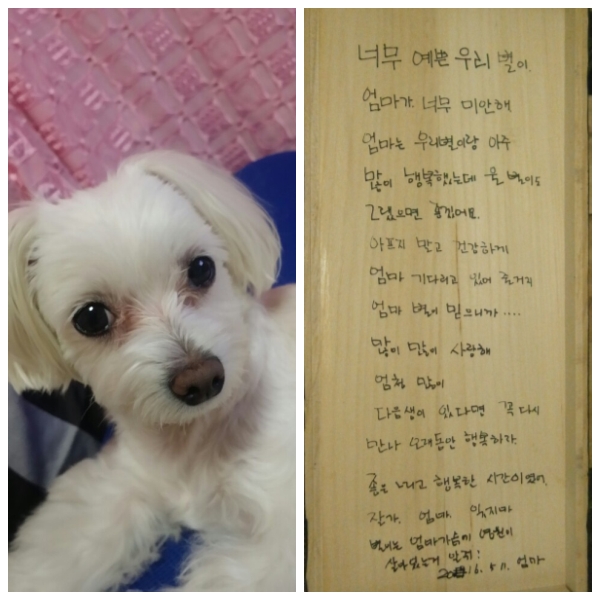 너무 예쁜 우리 별이.
엄마가 너무 미안해
엄마는 우리별이랑 아주
많이 행복했는데 울 별이도
그랬으면 좋겠어요.
아프지 말고 건강하게
엄마 기다리고 있어 줄거지
엄마 별이 믿으니까 ....
많이 많이 사랑해
엄청 많이
다음생이 있다면 꼭 다시
만나 오래동안 행복하자
좋은 그리고 행복한 시간이였어.
잘가. 엄마. 잊지마
별이는 엄마가슴에 영원히
살아있는거 알지!
6. 5. 11. 엄마